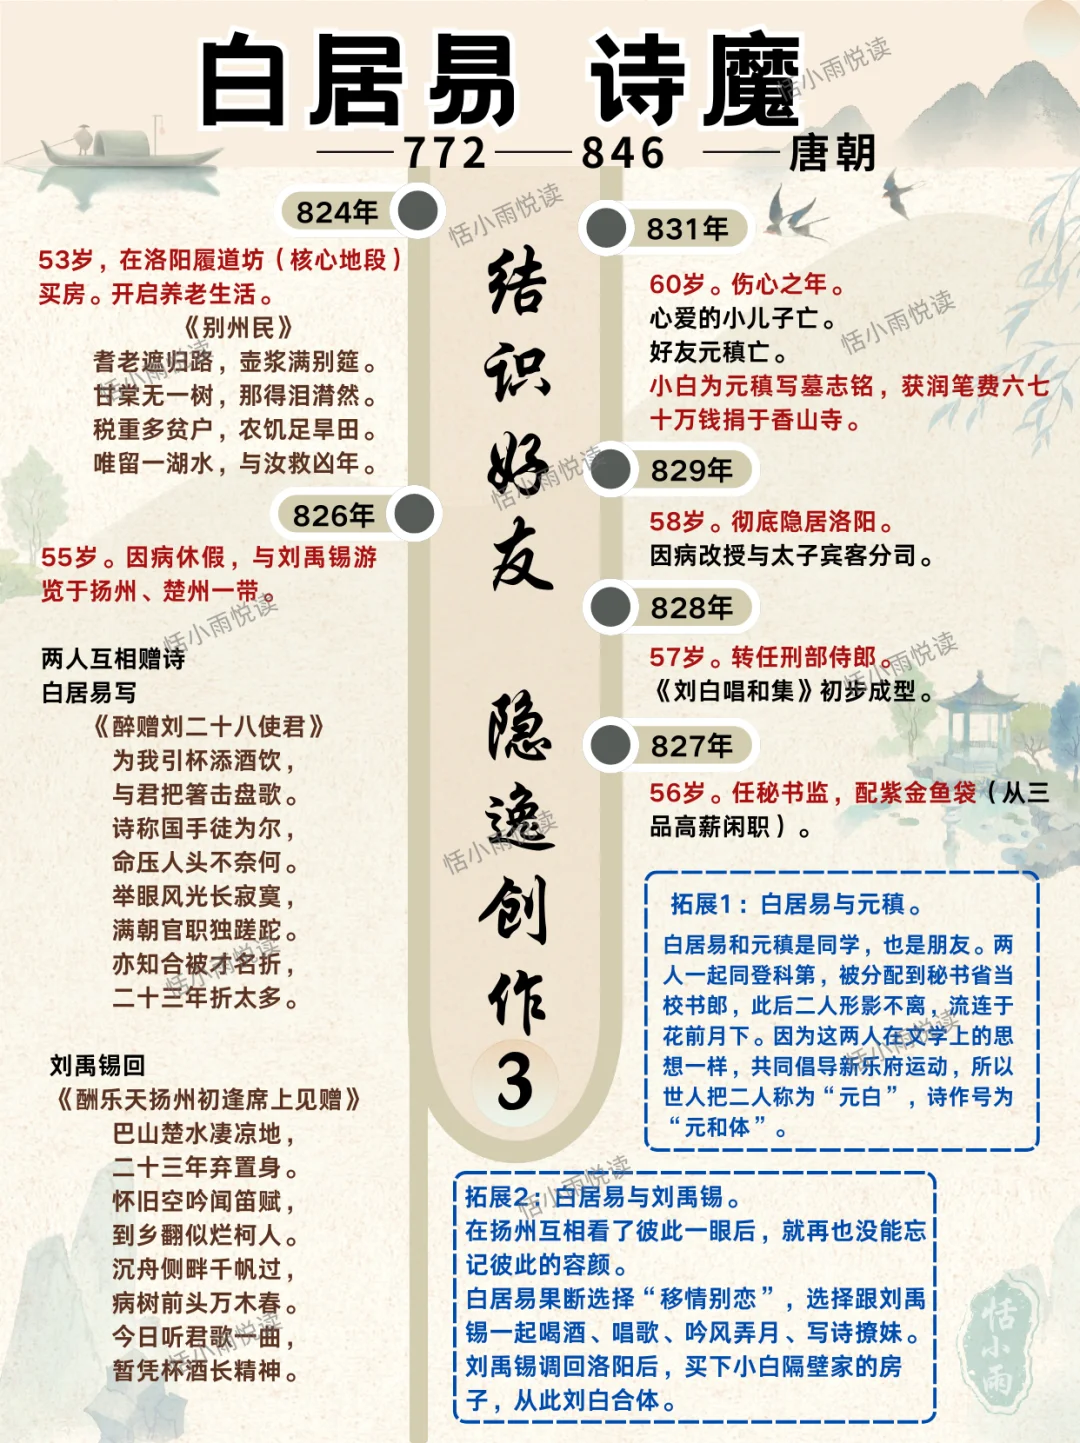 白居易 诗魔
——772——846 ——唐朝
824年
53岁，在洛阳履道坊（核心地段）
买房。开启养老生活。
《别州民》
耆老遮归路，壶浆满别筵。
甘棠无一树，那得泪潸然。
税重多贫户，农饥足旱田。
唯留一湖水，与汝救凶年。
826年
55岁。因病休假，与刘禹锡游
览于扬州、楚州一带。
两人互相赠诗
白居易写
《醉赠刘二十八使君》
为我引杯添酒饮，
与君把箸击盘歌。
诗称国手徒为尔，
命压人头不奈何。
举眼风光长寂寞，
满朝官职独蹉跎。
亦知合被才名折，
二十三年折太多。
刘禹锡回
《酬乐天扬州初逢席上见赠》
巴山楚水凄凉地，
二十三年弃置身。
怀旧空吟闻笛赋，
到乡翻似烂柯人。
沉舟侧畔千帆过，
病树前头万木春。
今日听君歌一曲，
暂凭杯酒长精神。
结识好友 隐逸创作3
831年
60岁。伤心之年。
心爱的小儿子亡。
好友元稹亡。
小白为元稹写墓志铭，获润笔费六七
十万钱捐于香山寺。
829年
58岁。彻底隐居洛阳。
因病改授与太子宾客分司。
828年
57岁。转任刑部侍郎。
《刘白唱和集》初步成型。
827年
56岁。任秘书监，配紫金鱼袋（从三
品高薪闲职）。
拓展1：白居易与元稹。
白居易和元稹是同学，也是朋友。两
人一起同登科第，被分配到秘书省当
校书郎，此后二人形影不离，流连于
花前月下。因为这两人在文学上的思
想一样，共同倡导新乐府运动，所以
世人把二人称为“元白”，诗作号为
“元和体”。
拓展2：白居易与刘禹锡。
在扬州互相看了彼此一眼后，就再也没能忘
记彼此的容颜。
白居易果断选择“移情别恋”，选择跟刘禹
锡一起喝酒、唱歌、吟风弄月、写诗撩妹。
刘禹锡调回洛阳后，买下小白隔壁家的房
子，从此刘白合体。
恬小雨
恬小雨悦读
恬小雨悦读
恬小雨悦读
恬小雨悦读
恬小雨悦读
恬小雨悦读
恬小雨悦读
恬小雨悦读
恬小雨悦读
恬小雨悦读
恬小雨悦读
恬小雨悦读